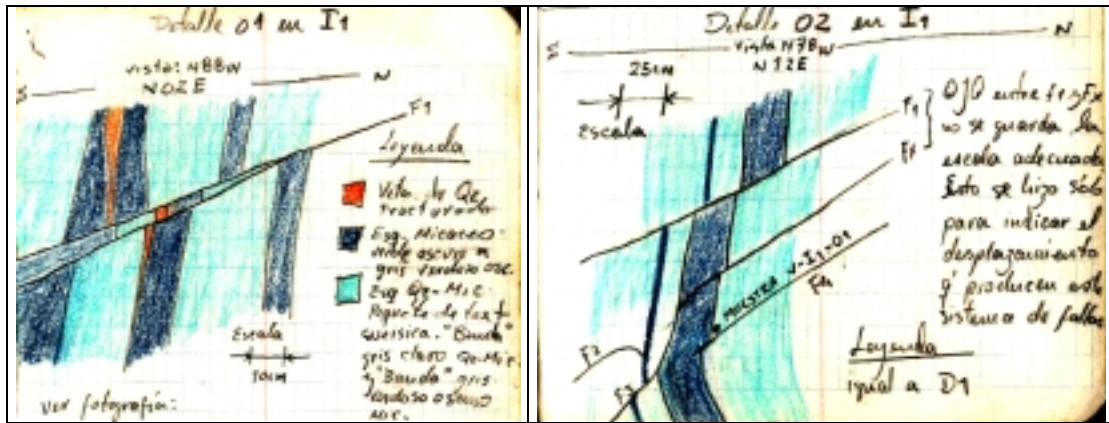 Detalle 01 en I1
vista: N88W
N02E
S
N
F1
Leyenda
Veta de Qz
fracturada
Esq. Micaceo
verde oscuro a
gris verdoso osc.
Esq Qz-Mic.
"Banda"
gris claro Qz-Mic
y "Banda" gris
verdoso oscuro
Mic.
Escala
10cm
ver fotografía:
Detalle 02 en I1
S
N
vista N78W
N12E
25cm
Escala
F1
Fx
OJO entre F1 y Fx
no se guarda la
escala adecuada
Esto se hizo sólo
para indicar el
desplazamiento
q' producen este
sistema de fallas
MUESTRA V-I1-01
F4
F2
F3
Leyenda
igual a D1